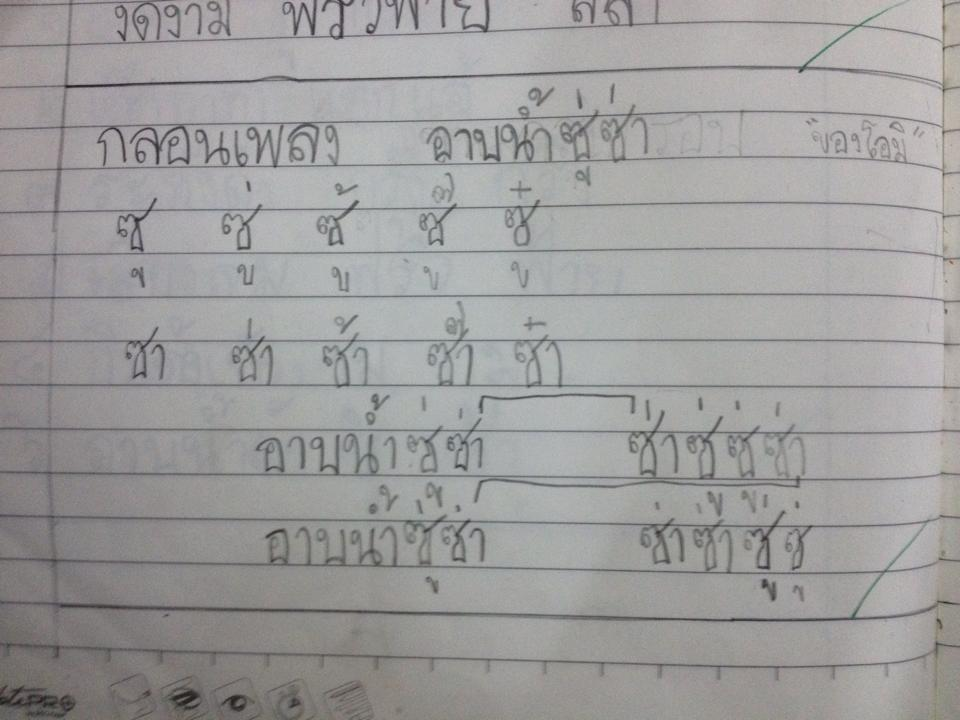 งดงาม พริ้วพาย ลีลา
กลอนเพลง อาบน้ำซู่ซ่า "ของโอมิ"
ซู ซู่ ซู้ ซู๊ ซู๋
ซา ซ่า ซ้า ซ๊า ซ๋า
อาบน้ำซู่ซ่า ซ่าซู่ซู่ซ่า
อาบน้ำซู่ซ่า ซ่าซ่าซู่ซู่